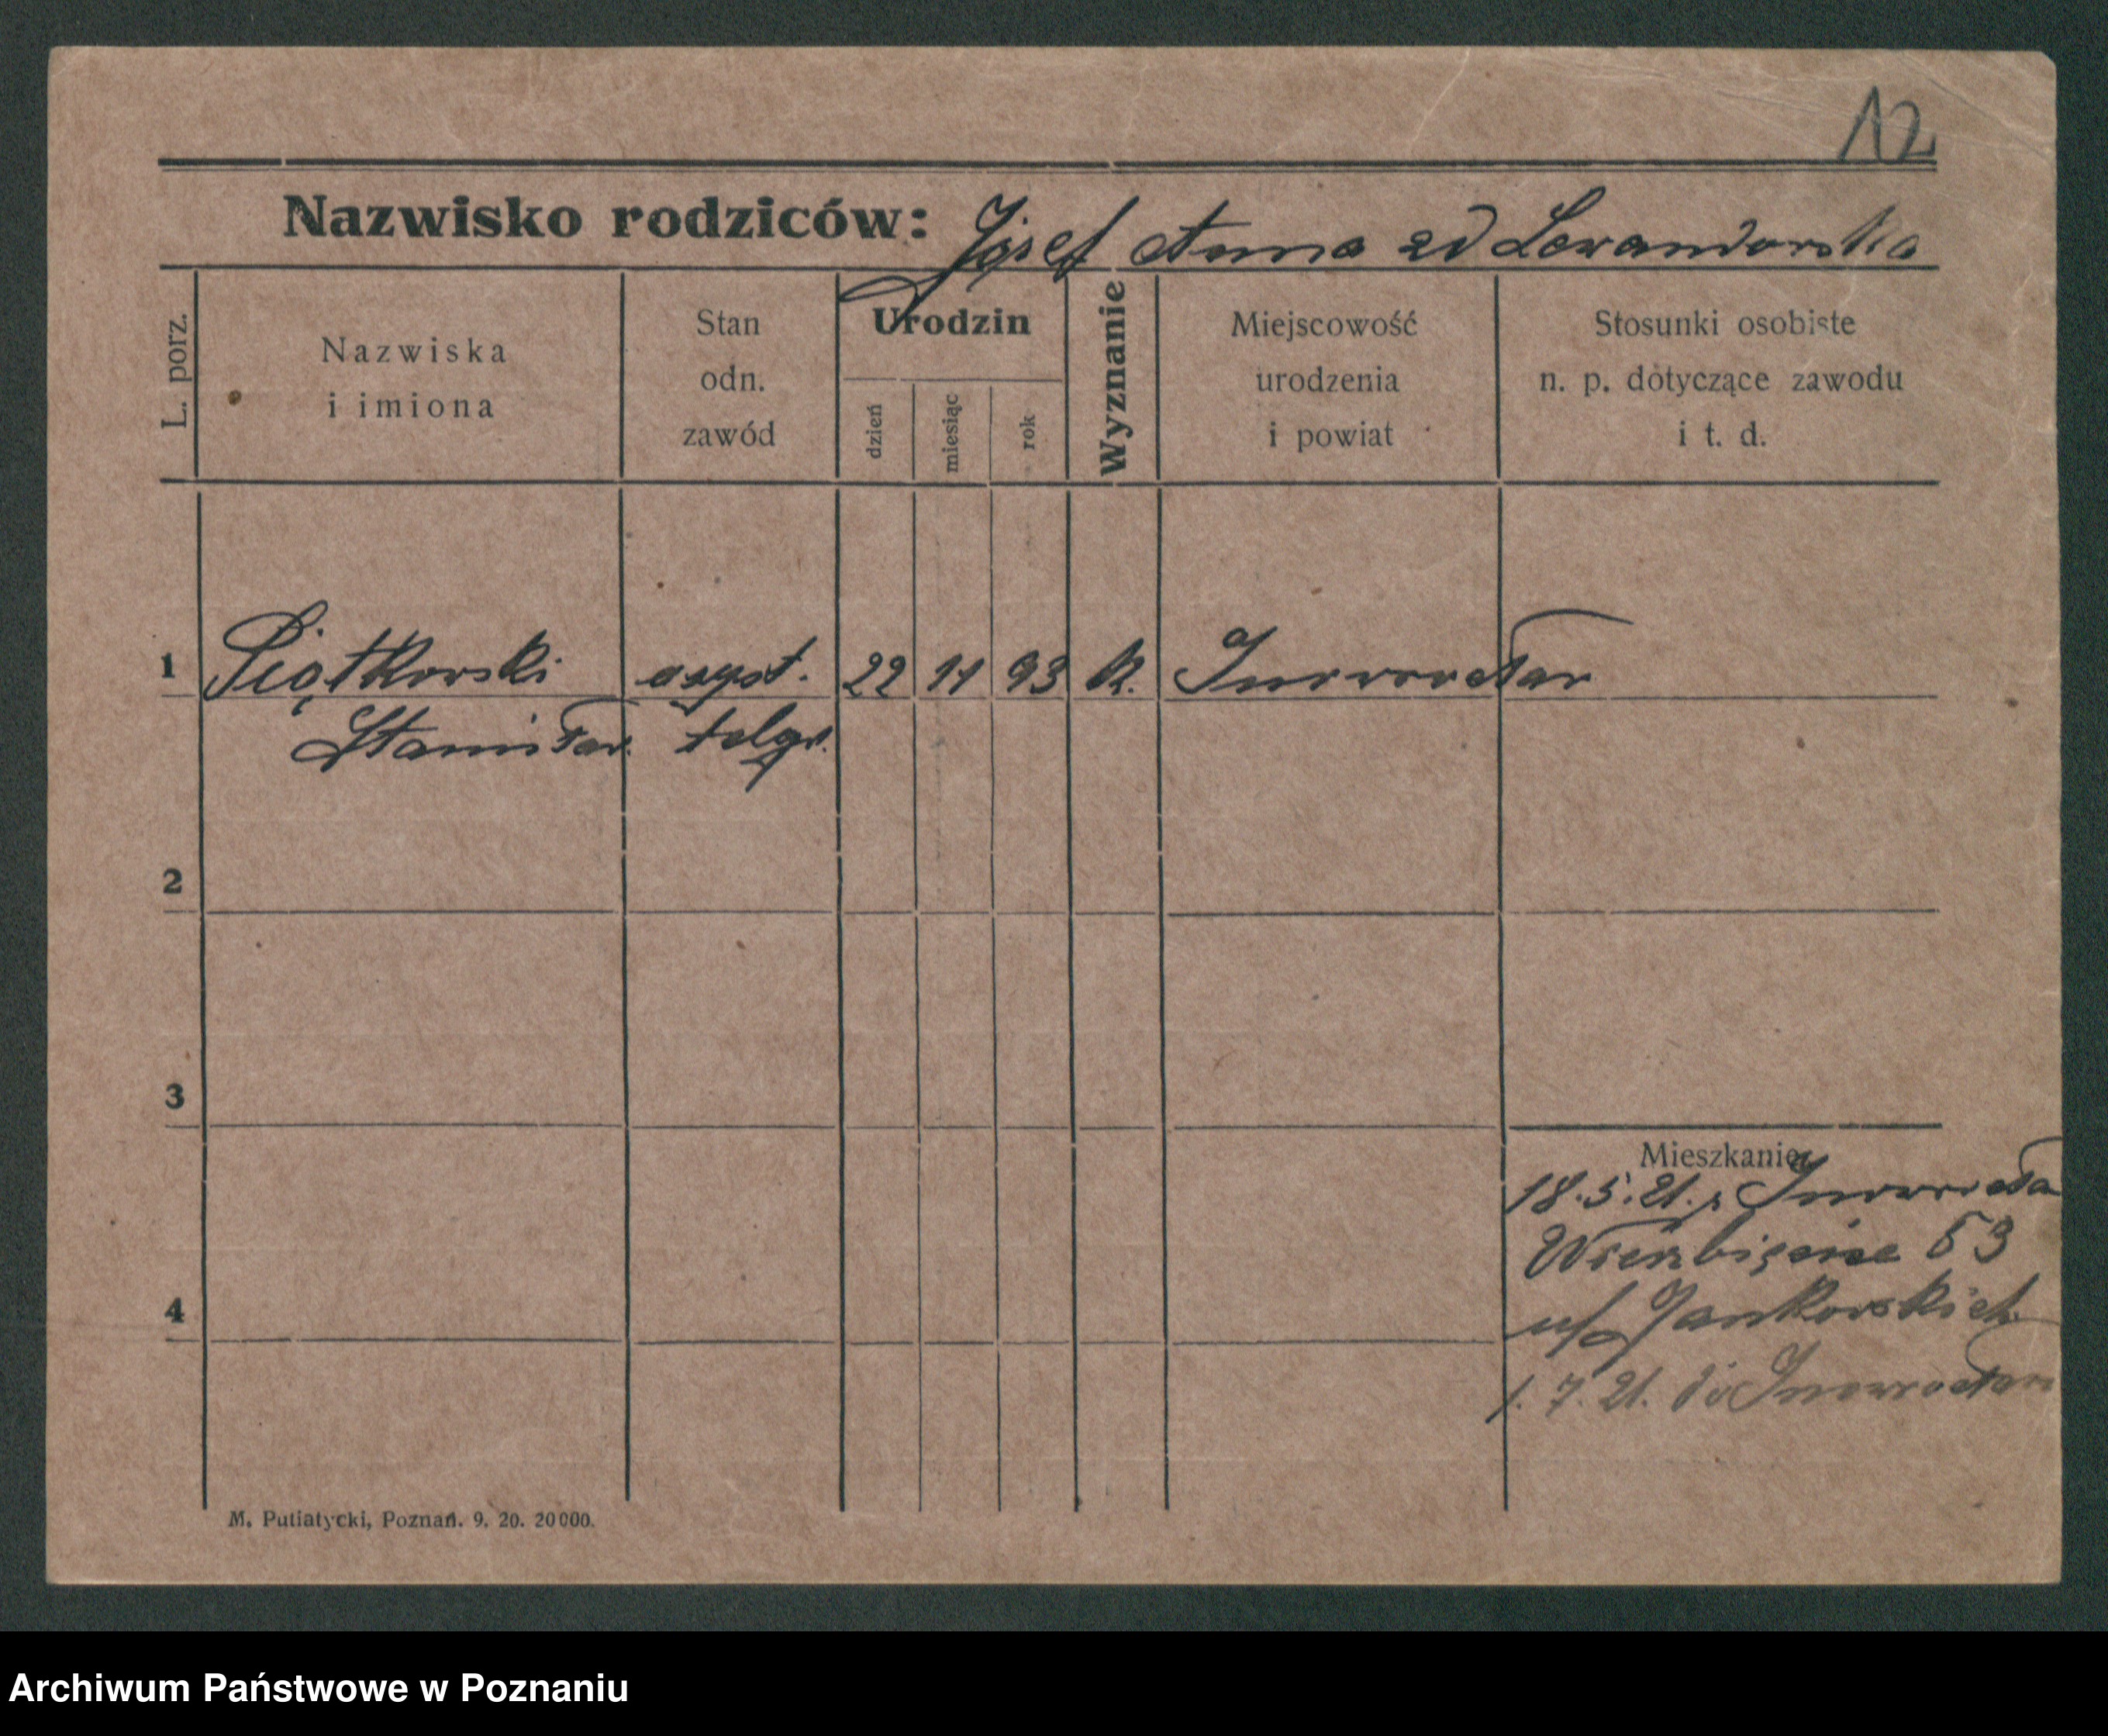 12
Nazwisko rodziców: Józef Anna zd Lewandowska
L. porz.
Nazwiska
i imiona
Stan
odn.
zawód
Urodzin
dzień
miesiąc
rok
Wyznanie
Miejscowość
urodzenia
i powiat
Stosunki osobiste
n. p. dotyczące zawodu
i t. d.
1 Piątkowski asyst. 22 11 93 k. Inowrocław
Stanisław telgr.
2
3
Mieszkanie
18.5.21. z Inowrocła
Wierzbięcice 53
u/ Jankowskich
4
1.7.21. do Inowrocławia
M. Putiatycki, Poznań. 9. 20. 20000.
Archiwum Państwowe w Poznaniu